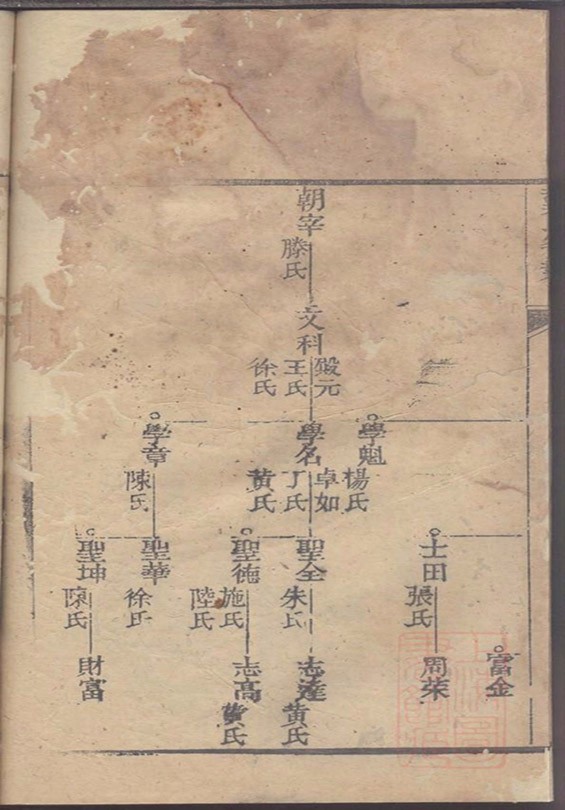 朝宰
滕氏
文科
殿元
王氏
徐氏
學魁
楊氏
學名
卓如
丁氏
黃氏
學章
陳氏
土田
張氏
聖全
朱氏
聖德
施氏
陸氏
聖華
徐氏
聖坤
陳氏
富金
周榮
志達
黃氏
志高
黃氏
財富